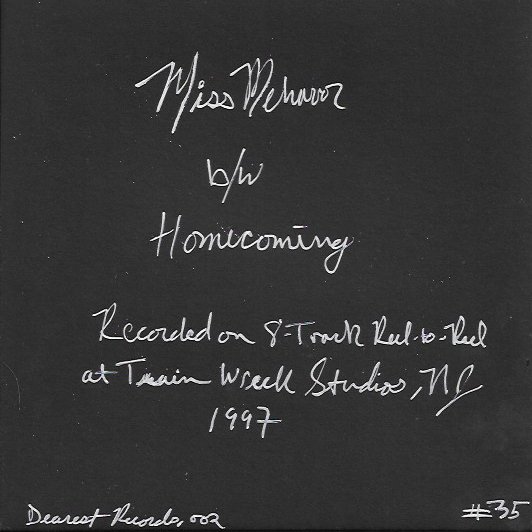 Miss Mehaver
b/w
Homecoming
Recorded on 8-Track Reel-to-Reel
at Train Wreck Studios, NJ
1997
Dearest Records, 002
#35